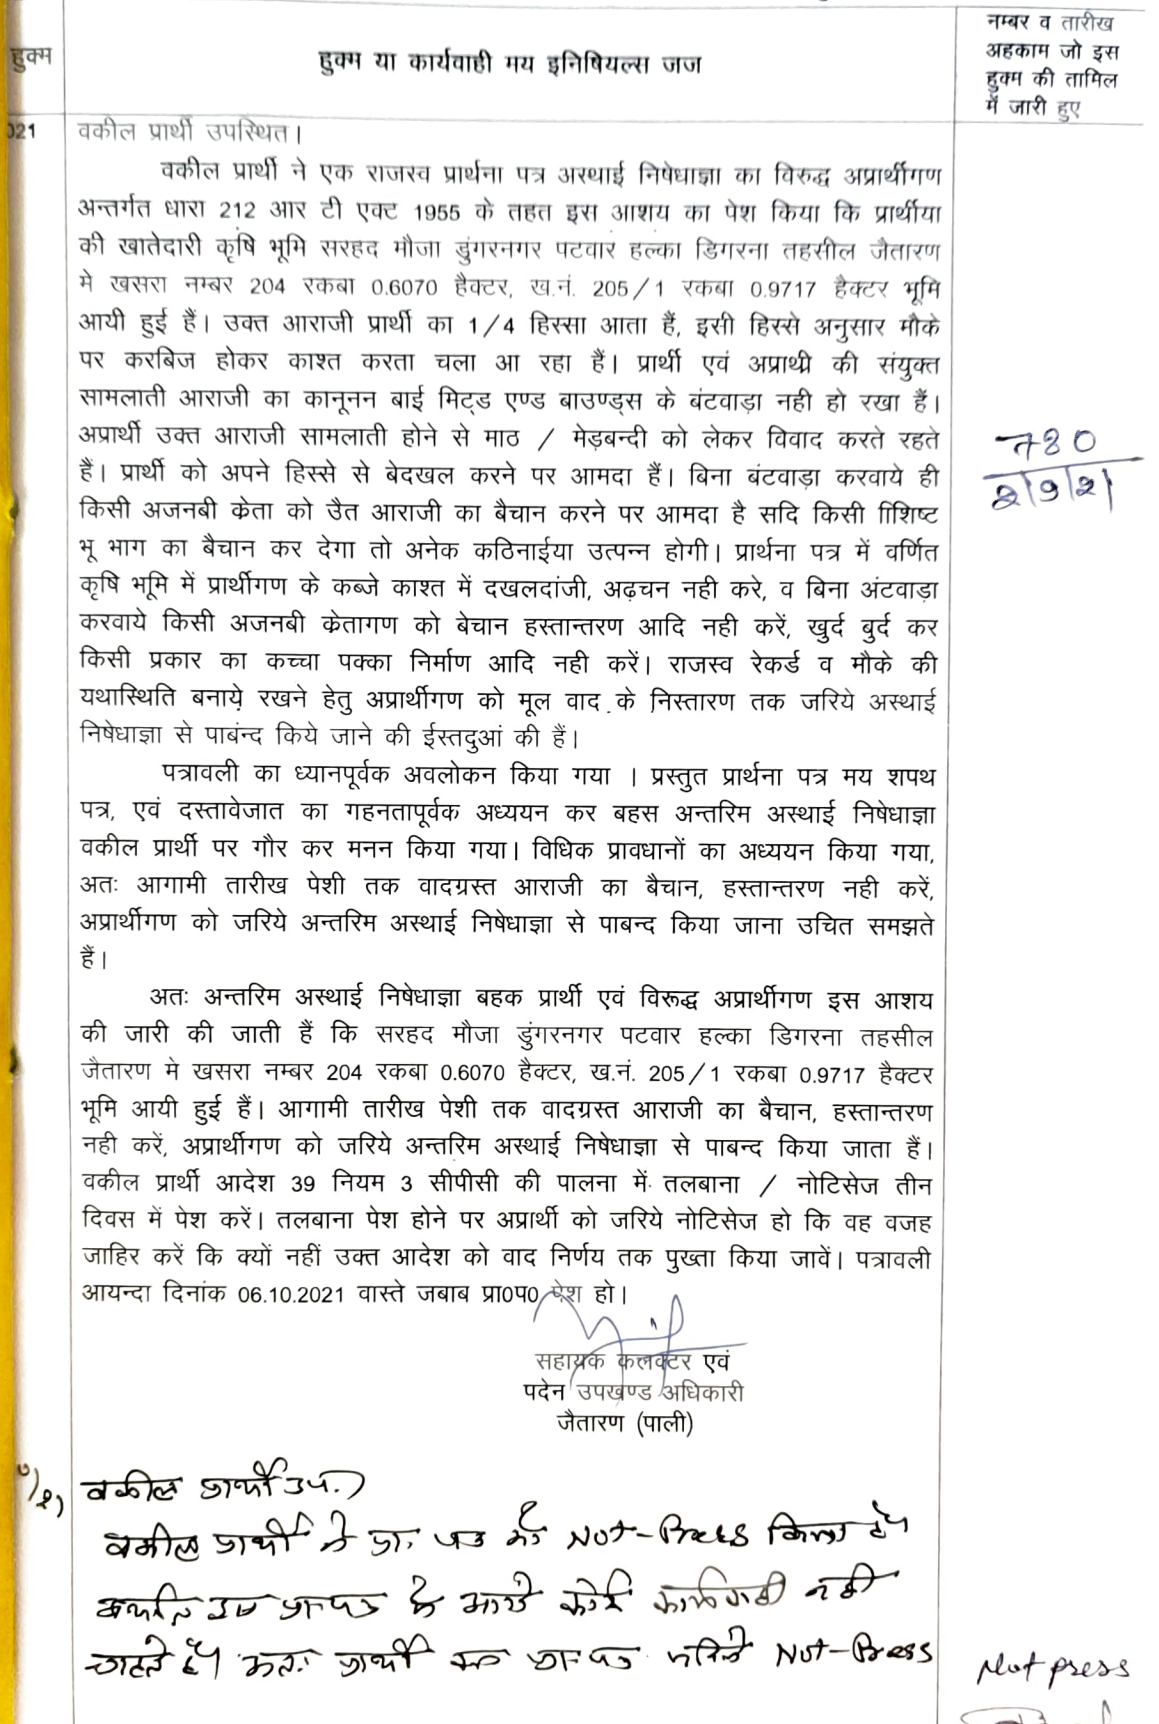 हुक्म
हुक्म या कार्यवाही मय इनिषियल्स जज
नम्बर व तारीख
अहकाम जो इस
हुक्म की तामिल
में जारी हुए
021
वकील प्रार्थी उपस्थित।
वकील प्रार्थी ने एक राजस्व प्रार्थना पत्र अस्थाई निषेधाज्ञा का विरुद्ध अप्रार्थीगण
अन्तर्गत धारा 212 आर टी एक्ट 1955 के तहत इस आशय का पेश किया कि प्रार्थीया
की खातेदारी कृषि भूमि सरहद मौजा डुंगरनगर पटवार हल्का डिगरना तहसील जैतारण
मे खसरा नम्बर 204 रकबा 0.6070 हैक्टर, ख.नं. 205/1 रकबा 0.9717 हैक्टर भूमि
आयी हुई हैं। उक्त आराजी प्रार्थी का 1/4 हिस्सा आता हैं, इसी हिस्से अनुसार मौके
पर करबिज होकर काश्त करता चला आ रहा हैं। प्रार्थी एवं अप्राथी की संयुक्त
सामलाती आराजी का कानूनन बाई मिट्ड एण्ड बाउण्ड्स के बंटवाड़ा नही हो रखा हैं।
अप्रार्थी उक्त आराजी सामलाती होने से माठ / मेड़बन्दी को लेकर विवाद करते रहते
हैं। प्रार्थी को अपने हिस्से से बेदखल करने पर आमदा हैं। बिना बंटवाड़ा करवाये ही
किसी अजनबी क्रेता को उैत आराजी का बैचान करने पर आमदा है सदि किसी शििष्ट
भू भाग का बैचान कर देगा तो अनेक कठिनाईया उत्पन्न होगी। प्रार्थना पत्र में वर्णित
कृषि भूमि में प्रार्थीगण के कब्जे काश्त में दखलदांजी, अढ़चन नही करे, व बिना अंटवाड़ा
करवाये किसी अजनबी क्रेतागण को बेचान हस्तान्तरण आदि नही करें, खुर्द बुर्द कर
किसी प्रकार का कच्चा पक्का निर्माण आदि नही करें। राजस्व रेकर्ड व मौके की
यथास्थिति बनाये रखने हेतु अप्रार्थीगण को मूल वाद के निस्तारण तक जरिये अस्थाई
निषेधाज्ञा से पाबंन्द किये जाने की ईस्तदुआं की हैं।
780
2/9/21
पत्रावली का ध्यानपूर्वक अवलोकन किया गया । प्रस्तुत प्रार्थना पत्र मय शपथ
पत्र, एवं दस्तावेजात का गहनतापूर्वक अध्ययन कर बहस अन्तरिम अस्थाई निषेधाज्ञा
वकील प्रार्थी पर गौर कर मनन किया गया। विधिक प्रावधानों का अध्ययन किया गया,
अतः आगामी तारीख पेशी तक वादग्रस्त आराजी का बैचान, हस्तान्तरण नही करें,
अप्रार्थीगण को जरिये अन्तरिम अस्थाई निषेधाज्ञा से पाबन्द किया जाना उचित समझते
हैं।
अतः अन्तरिम अस्थाई निषेधाज्ञा बहक प्रार्थी एवं विरूद्ध अप्रार्थीगण इस आशय
की जारी की जाती हैं कि सरहद मौजा डुंगरनगर पटवार हल्का डिगरना तहसील
जैतारण मे खसरा नम्बर 204 रकबा 0.6070 हैक्टर, ख.नं. 205/1 रकबा 0.9717 हैक्टर
भूमि आयी हुई हैं। आगामी तारीख पेशी तक वादग्रस्त आराजी का बैचान, हस्तान्तरण
नही करें, अप्रार्थीगण को जरिये अन्तरिम अस्थाई निषेधाज्ञा से पाबन्द किया जाता हैं।
वकील प्रार्थी आदेश 39 नियम 3 सीपीसी की पालना में तलबाना / नोटिसेज तीन
दिवस में पेश करें। तलबाना पेश होने पर अप्रार्थी को जरिये नोटिसेज हो कि वह वजह
जाहिर करें कि क्यों नहीं उक्त आदेश को वाद निर्णय तक पुख्ता किया जावें। पत्रावली
आयन्दा दिनांक 06.10.2021 वास्ते जबाब प्रा0प0 पेश हो।
सहायक कलक्टर एवं
पदेन उपखण्ड अधिकारी
जैतारण (पाली)
वकील प्रार्थी उप.।
वकील प्रार्थी ने प्रा. पत्र को Not-Press किया है।
प्रा पत्र के आगे कोई कार्यवाही नही
चाहते है। अतः प्रार्थी का प्रा. पत्र Not-Press
Not press